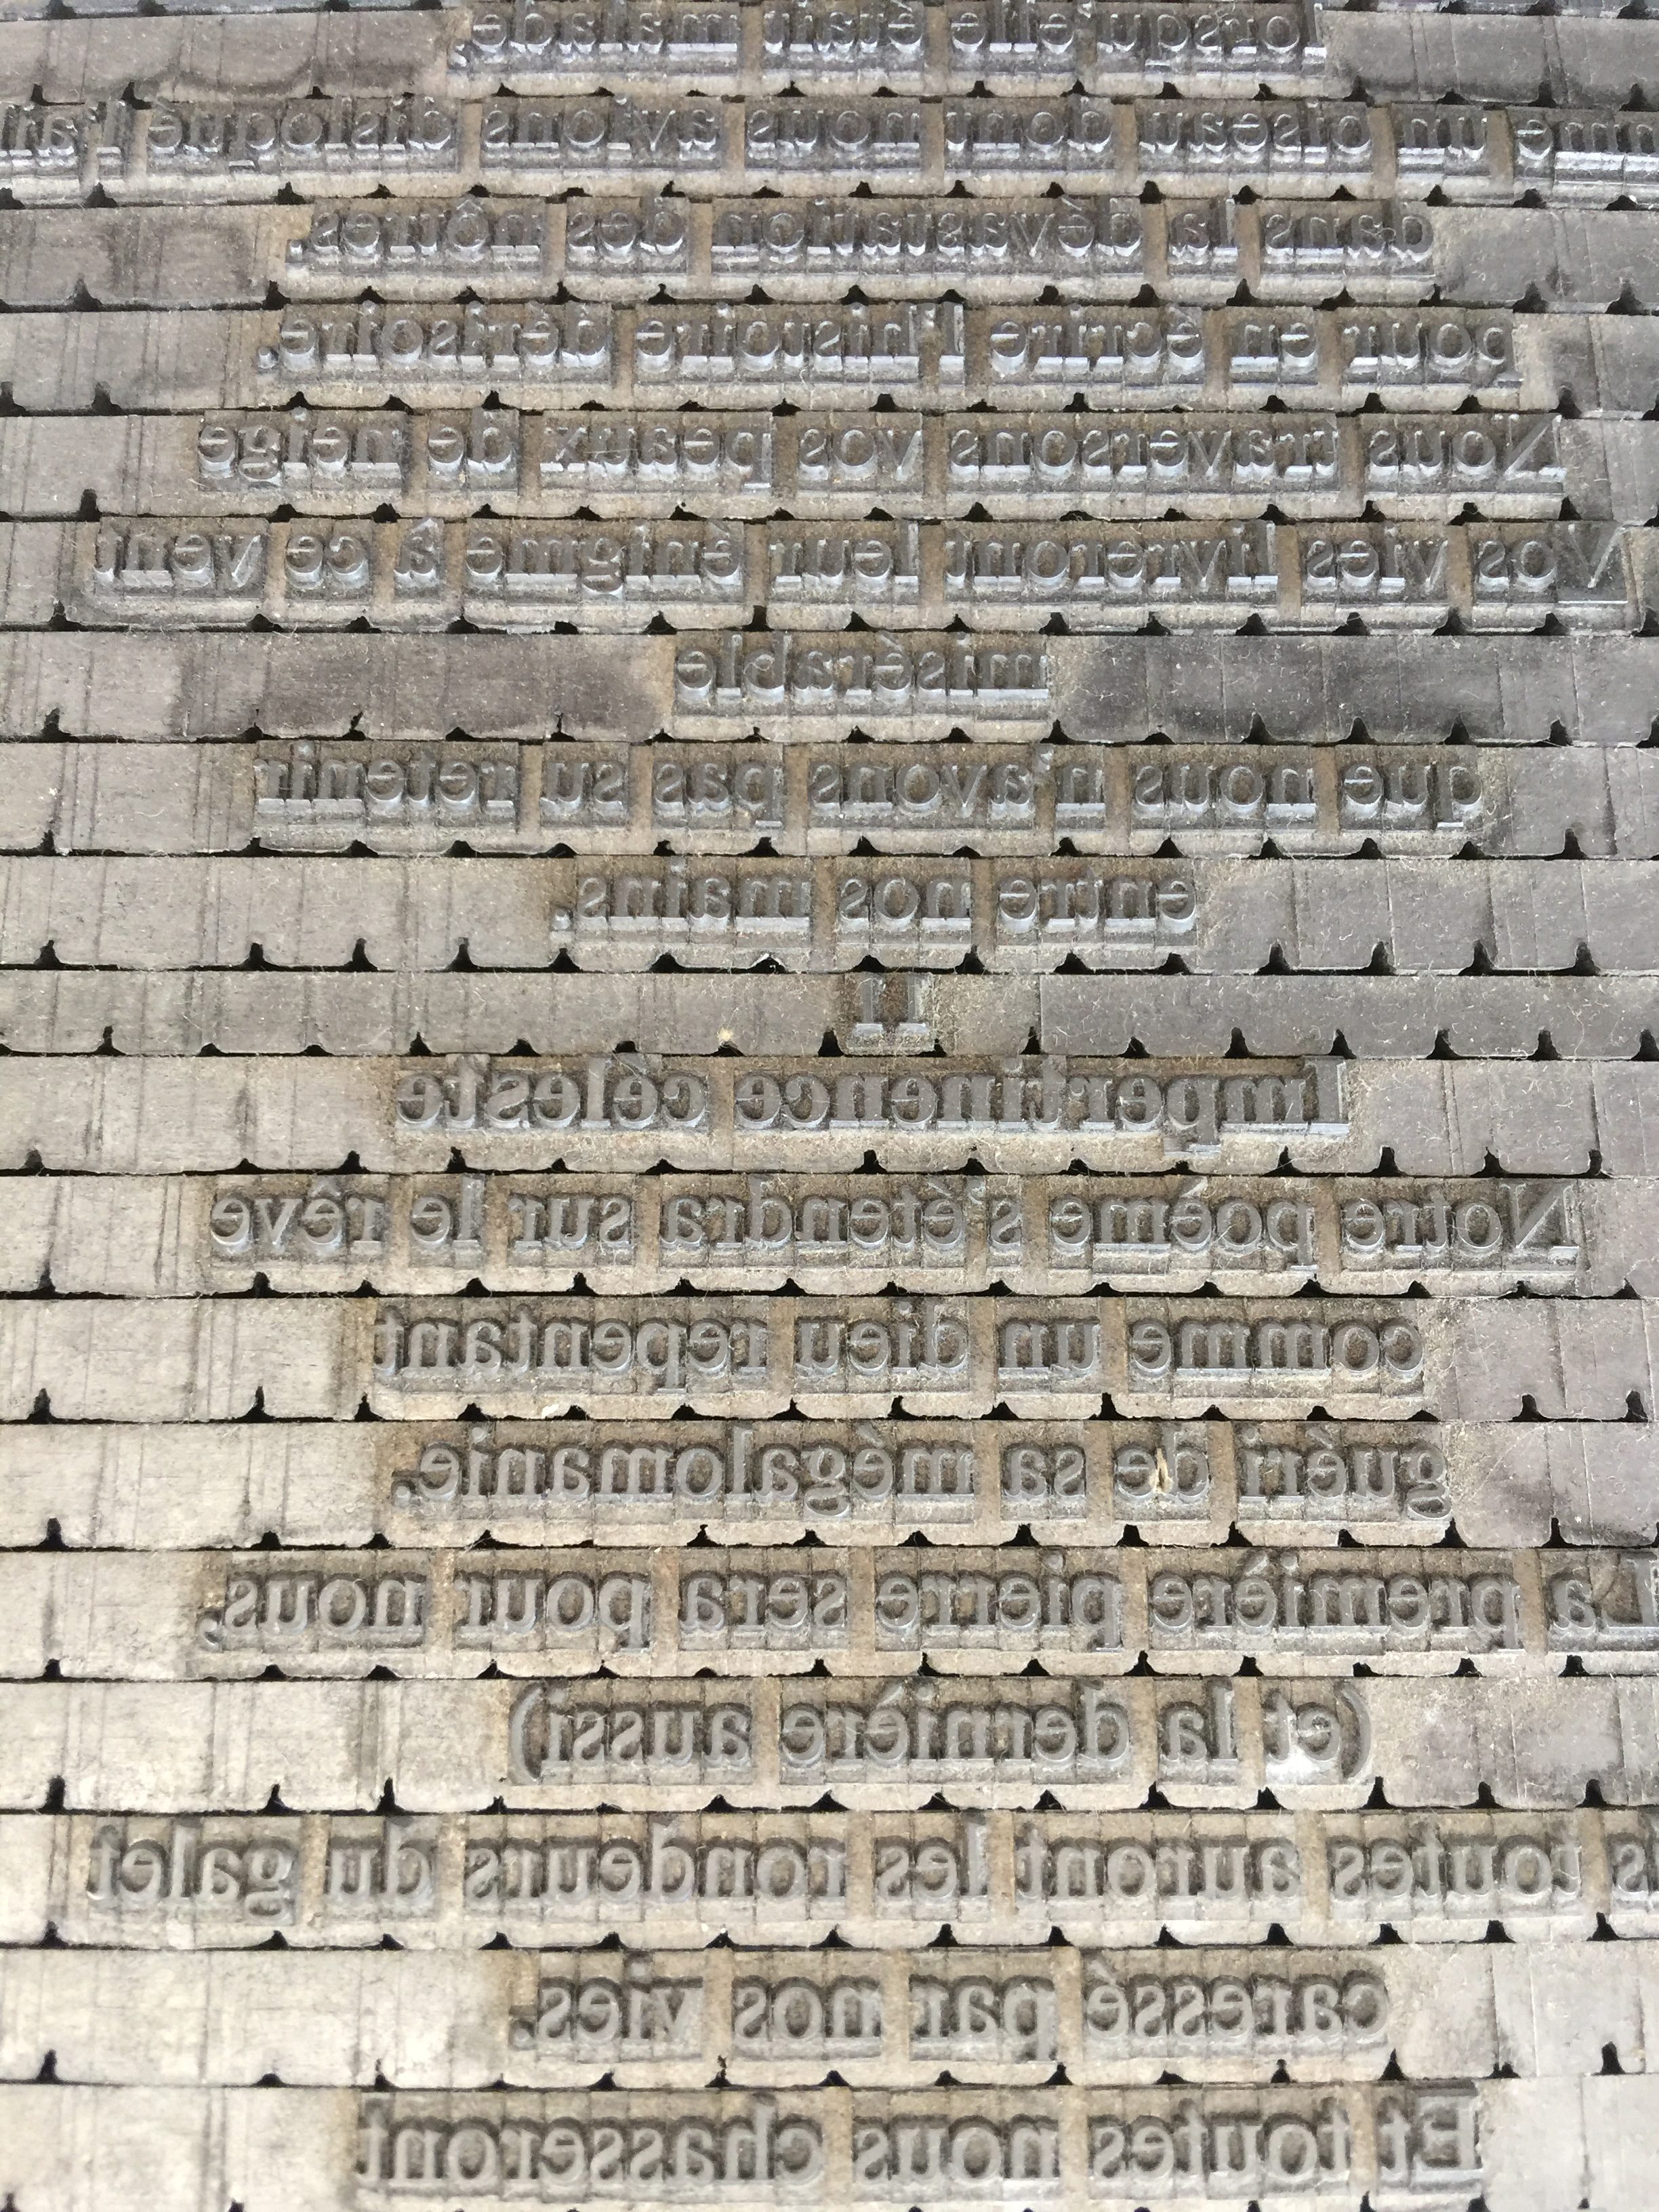 lorsqu'elle était malade,
mme un oiseau dont nous avions disloqué l'ai
dans la dévastation des nôtres,
pour en écrire l'histoire dérisoire.
Nous traversons vos peaux de neige
Vos vies livreront leur énigme à ce vent
misérable
que nous n'avons pas su retenir
entre nos mains.
11
Impertinence céleste
Notre poème s'étendra sur le rêve
comme un dieu repentant
guéri de sa mégalomanie.
La première pierre sera pour nous,
(et la dernière aussi)
s toutes auront les rondeurs du galet
caressé par nos vies.
Et toutes nous chasseront